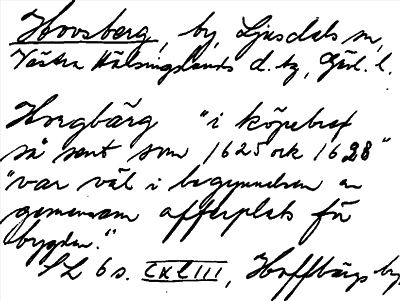 Hovsberg, by, Ljusdals sn,
Västra Hälsinglands d.sg, Gävl. l.
Horgbärg "i köpebref
så sent som 1625 och 1628"
"var väl i begynnelsen en
gemensam offerplats för
bygden."
SL 6 s. CXLIII, Hoffbärgs by,